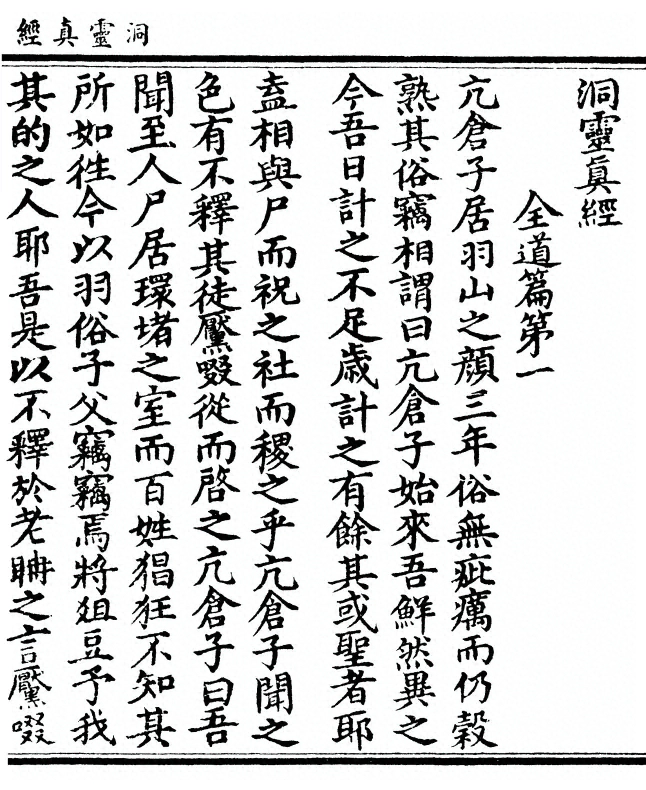 洞靈真經
洞靈真經
全道篇第一
亢倉子居羽山之顔三年俗無疵癘而仍穀
熟其俗竊相謂曰亢倉子始來吾鮮然異之
今吾日計之不足歲計之有餘其或聖者耶
盍相與尸而祝之社而稷之乎亢倉子聞之
色有不釋其徒厴啜從而啓之亢倉子曰吾
聞至人尸居環堵之室而百姓猖狂不知其
所如徃今以羽俗子父竊竊焉將俎豆予我
其的之人耶吾是以不釋於老聃之言厴啜